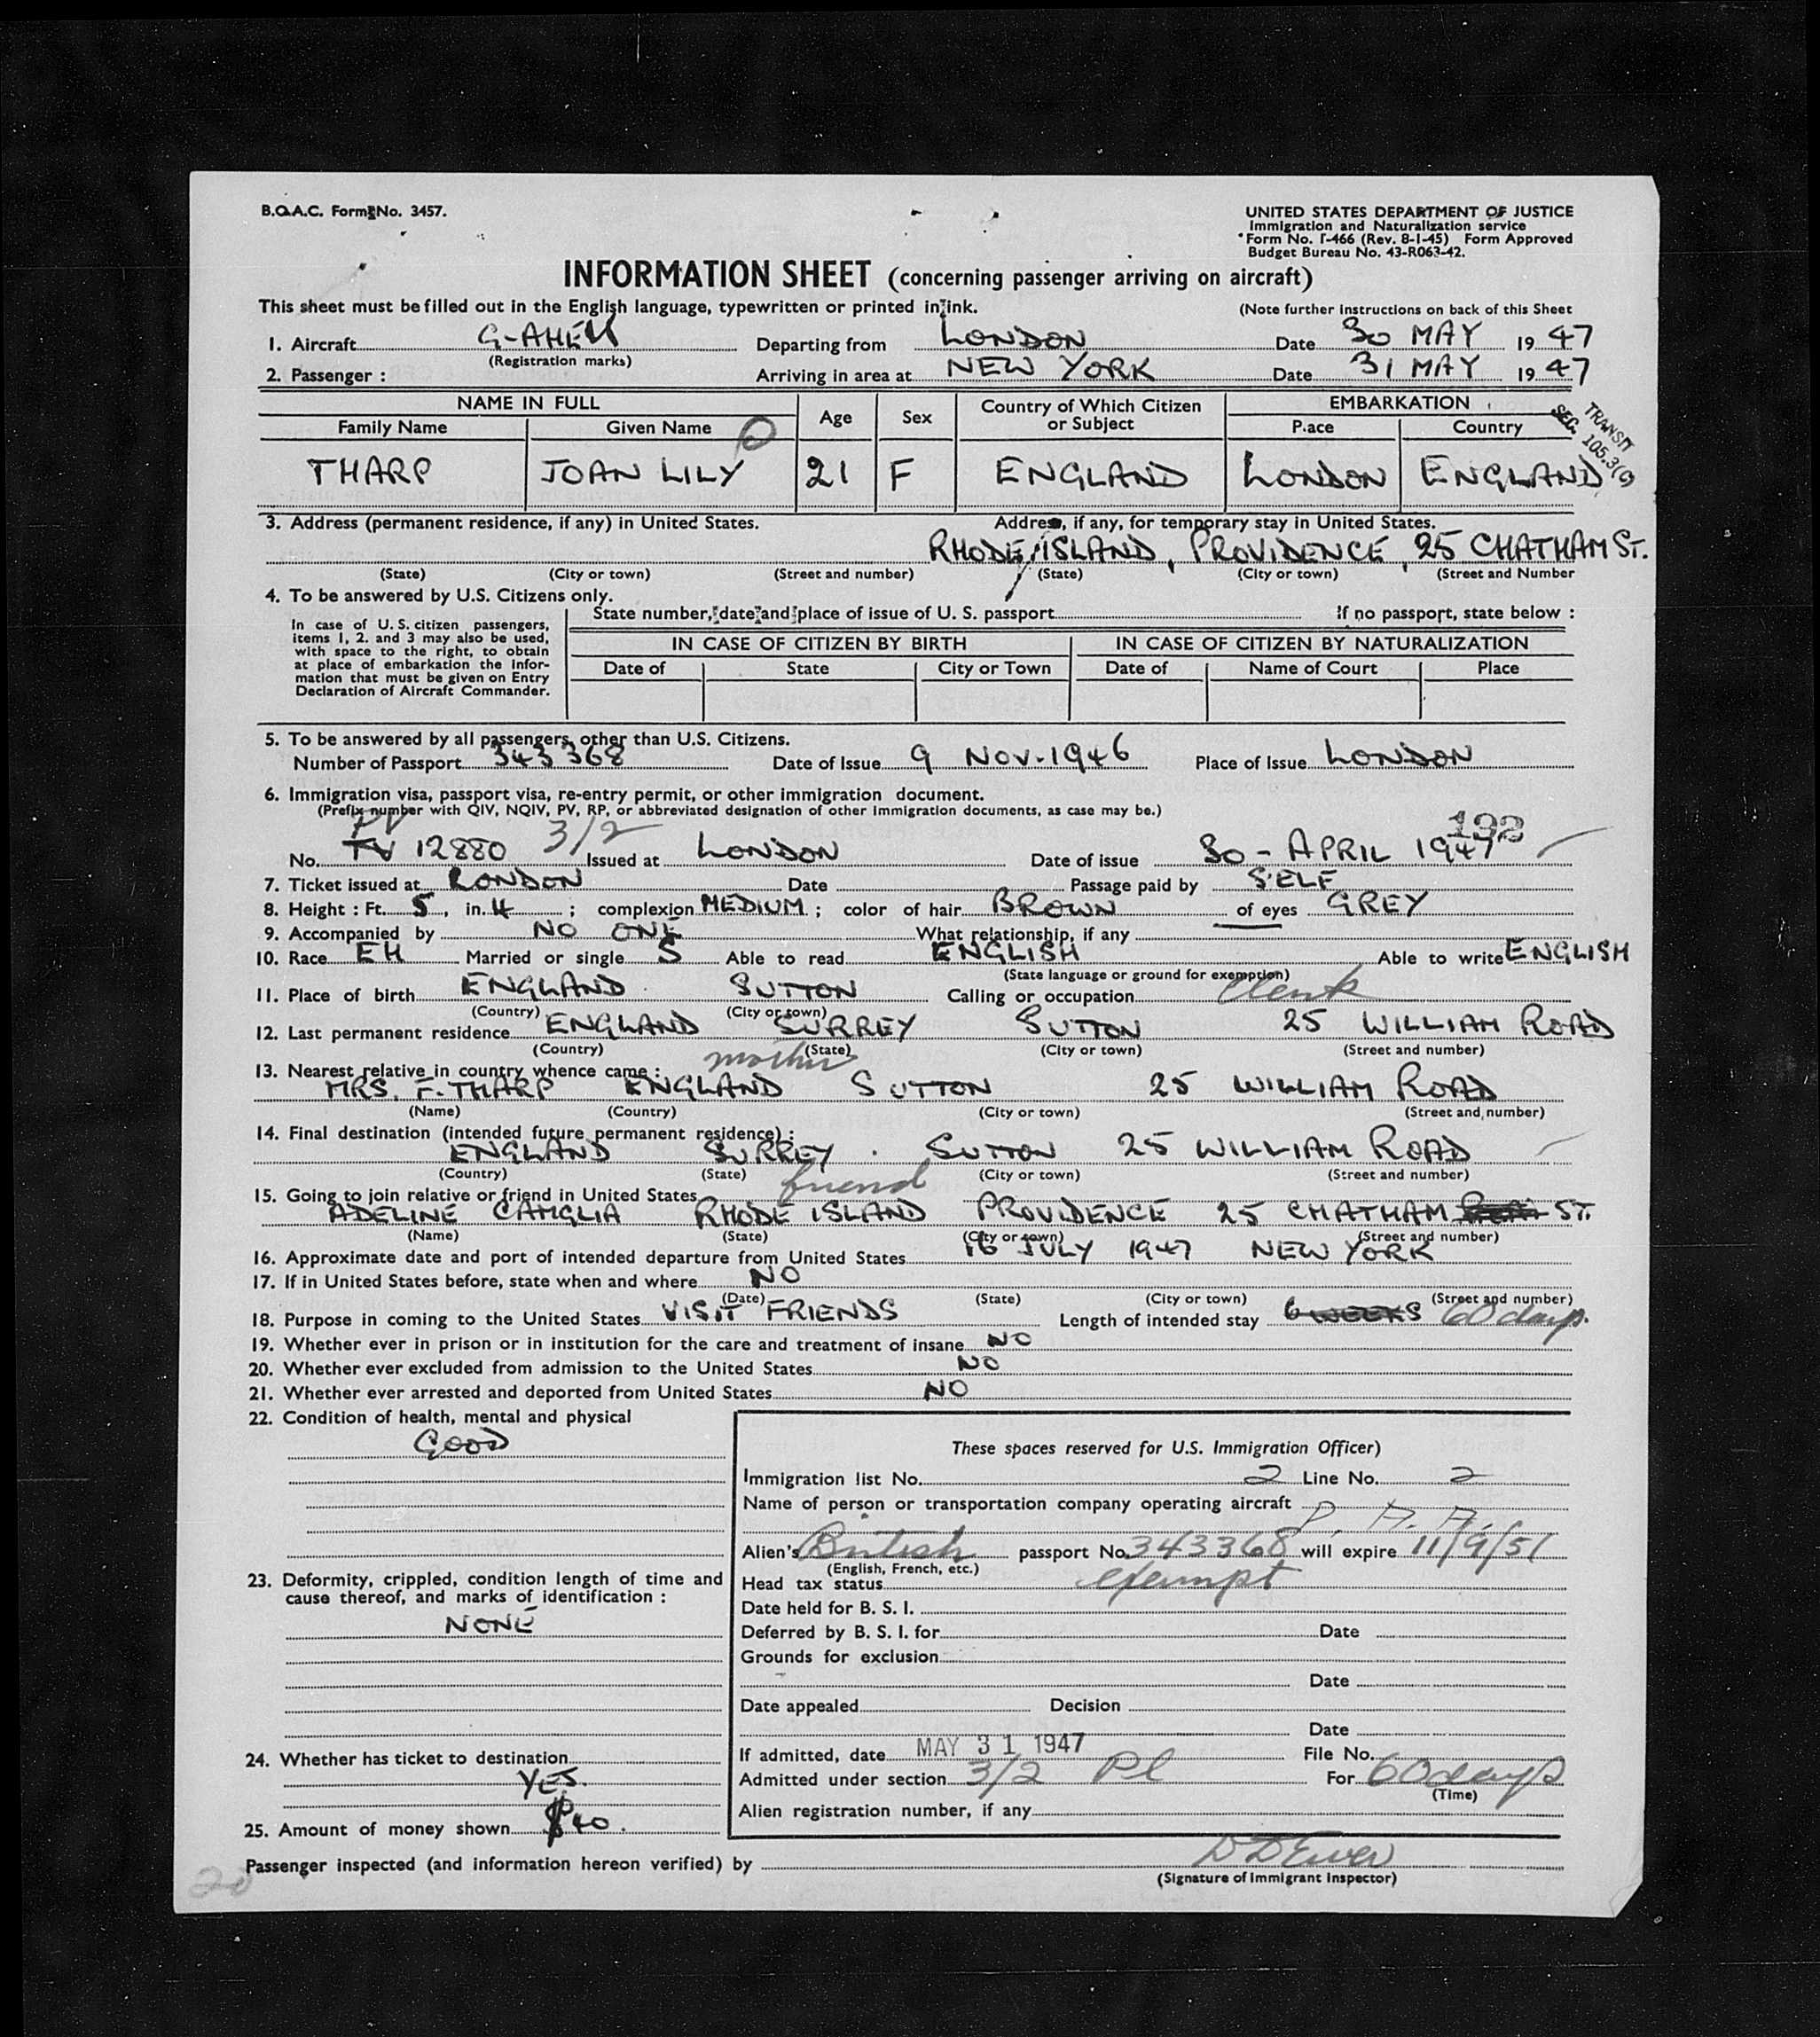 B.O.A.C. Form No. 3457.
UNITED STATES DEPARTMENT OF JUSTICE
Immigration and Naturalization service
Form No. I-466 (Rev. 8-1-45) Form Approved
Budget Bureau No. 43-R063-42.
INFORMATION SHEET (concerning passenger arriving on aircraft)
This sheet must be filled out in the English language, typewritten or printed in ink. (Note further instructions on back of this Sheet
1. Aircraft G-AHEM Departing from LONDON Date 30 MAY 19 47
(Registration marks)
2. Passenger : Arriving in area at NEW YORK Date 31 MAY 19 47
NAME IN FULL Age Sex Country of Which Citizen or Subject EMBARKATION
Family Name Given Name Place Country
TRANSIT
SEC. 105.3(c)
THARP JOAN LILY 21 F ENGLAND LONDON ENGLAND
3. Address (permanent residence, if any) in United States. Address, if any, for temporary stay in United States.
RHODE ISLAND, PROVIDENCE, 25 CHATHAM ST.
(State) (City or town) (Street and number) (State) (City or town) (Street and Number
4. To be answered by U.S. Citizens only.
In case of U.S. citizen passengers, items 1, 2. and 3 may also be used, with space to the right, to obtain at place of embarkation the infor-mation that must be given on Entry Declaration of Aircraft Commander.
State number, date and place of issue of U. S. passport If no passport, state below :
IN CASE OF CITIZEN BY BIRTH IN CASE OF CITIZEN BY NATURALIZATION
Date of State City or Town Date of Name of Court Place
5. To be answered by all passengers, other than U.S. Citizens.
Number of Passport 343368 Date of Issue 9 NOV. 1946 Place of Issue LONDON
6. Immigration visa, passport visa, re-entry permit, or other immigration document.
(Prefix number with QIV, NQIV, PV, RP, or abbreviated designation of other immigration documents, as case may be.)
PV 3/2 192
No. TV 12880 Issued at LONDON Date of issue 30 - APRIL 1947
7. Ticket issued at LONDON Date Passage paid by SELF
8. Height : Ft. 5, in. 4 ; complexion MEDIUM ; color of hair BROWN of eyes GREY
9. Accompanied by NO ONE What relationship, if any
10. Race EH Married or single S Able to read ENGLISH Able to write ENGLISH
(State language or ground for exemption)
11. Place of birth ENGLAND SUTTON Calling or occupation Clerk
(Country) (City or town)
12. Last permanent residence ENGLAND SURREY SUTTON 25 WILLIAM ROAD
(Country) (State) (City or town) (Street and number)
13. Nearest relative in country whence came : mother
MRS. F. THARP ENGLAND SUTTON 25 WILLIAM ROAD
(Name) (Country) (City or town) (Street and number)
14. Final destination (intended future permanent residence) :
ENGLAND SURREY SUTTON 25 WILLIAM ROAD
(Country) (State) (City or town) (Street and number)
15. Going to join relative or friend in United States friend
ADELINE CAMGLIA RHODE ISLAND PROVIDENCE 25 CHATHAM ST.
(Name) (State) (City or town) (Street and number)
16. Approximate date and port of intended departure from United States 16 JULY 1947 NEW YORK
17. If in United States before, state when and where NO
(Date) (State) (City or town) (Street and number)
18. Purpose in coming to the United States VISIT FRIENDS Length of intended stay 6 WEEKS 60 days.
19. Whether ever in prison or in institution for the care and treatment of insane NO
20. Whether ever excluded from admission to the United States NO
21. Whether ever arrested and deported from United States NO
22. Condition of health, mental and physical
GOOD
23. Deformity, crippled, condition length of time and cause thereof, and marks of identification :
NONE
24. Whether has ticket to destination
YES.
25. Amount of money shown $40.
These spaces reserved for U.S. Immigration Officer)
Immigration list No. 2 Line No. 2
Name of person or transportation company operating aircraft
P. A. A.
Alien's British passport No. 343368 will expire 11/9/51
(English, French, etc.)
Head tax status exempt
Date held for B. S. I.
Deferred by B. S. I. for Date
Grounds for exclusion
Date
Date appealed Decision
Date
If admitted, date MAY 31 1947 File No.
Admitted under section 3/2 Pl For 60 days
(Time)
Alien registration number, if any
Passenger inspected (and information hereon verified) by
(Signature of Immigrant Inspector)
20